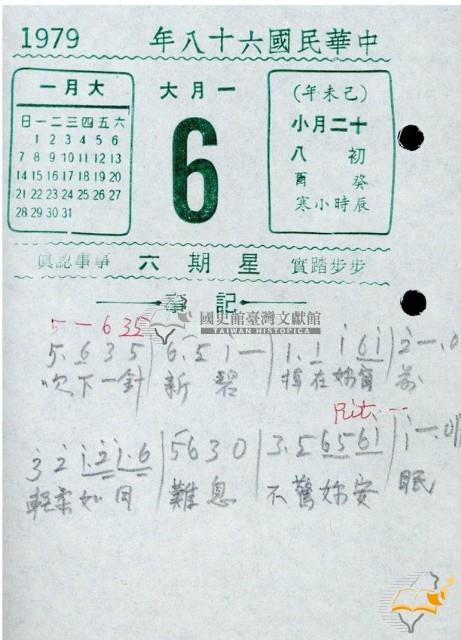 1979 中華民國六十八年
一月大
日一二三四五六
1 2 3 4 5 6
7 8 9 10 11 12 13
14 15 16 17 18 19 20
21 22 23 24 25 26 27
28 29 30 31
一月大
6
(己未年)
十二月小
初八
癸酉
辰時小寒
步步踏實 星期六 事事認真
記事
國史館臺灣文獻館
TAIWAN HISTORICA
5. — 6 35
5. 6 3 5 | 6. 5 1 — | 1. 1 1 6 1 | 2 — . 0
吹下一針 新碧 掉在妳窗前
Rit. --
3 2 1. 2 1. 6 | 5 6 3 0 | 3. 5 6 5 6 1 | 1 — . 0 ||
輕柔如 息 不驚妳安眠